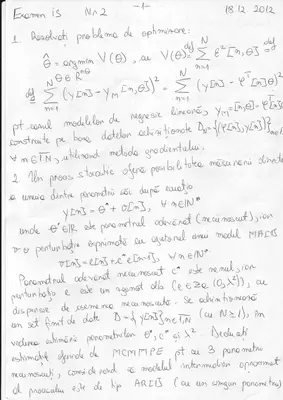 Examen IS Nr 2 -1- 18.12.2012
1. Rezolvați problema de optimizare:
θ̂ = argmin V(θ), cu V(θ) def= Σ ε²[n,θ] def=
θ∈ℝ^nθ n=1
def= Σ (y[n] - y_M[n,θ])² = Σ (y[n] - φᵀ[n]θ)²
n=1 n=1
pt. cazul modelelor de regresie liniară, y_M[n,θ]=φᵀ[n]θ
construite pe baza datelor achiziționate D_N={(φ[n],y[n])}
∀ n∈1,N, utilizând metoda gradientului.
2. Un proces stocastic oferă posibilitatea măsurării directe
a unuia dintre parametrii săi după ecuația
y[n] = θ* + v[n], ∀ n∈ℕ*
unde θ*∈ℝ este parametrul adevărat (necunoscut), iar
v o perturbație exprimată cu ajutorul unui model MA[1]
v[n]=e[n]+c*e[n-1], ∀ n∈ℕ*
Parametrul adevărat necunoscut c* este nenul, iar
perturbația e este un zgomot alb (e∈ℤ (0,λ²)), cu
dispersie de asemenea necunoscută. Se achiziționează
un set finit de date D={y[n]}n∈1,N (cu N≥1), în
vederea estimării parametrilor θ*, c* și λ². Deduceți
estimațiile oferite de MCMMPE pt cei 3 parametri
necunoscuți, considerând că modelul intermediar aproximat
al procesului este de tip AR[1] (cu un singur parametru)